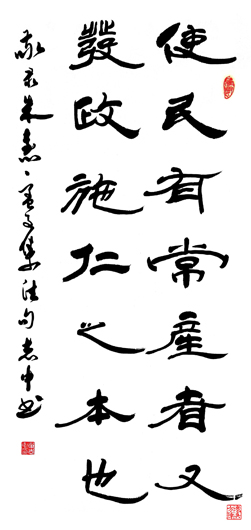 使民有常產者又
發政施仁之本也
敬录朱熹·孟子集注句志中书